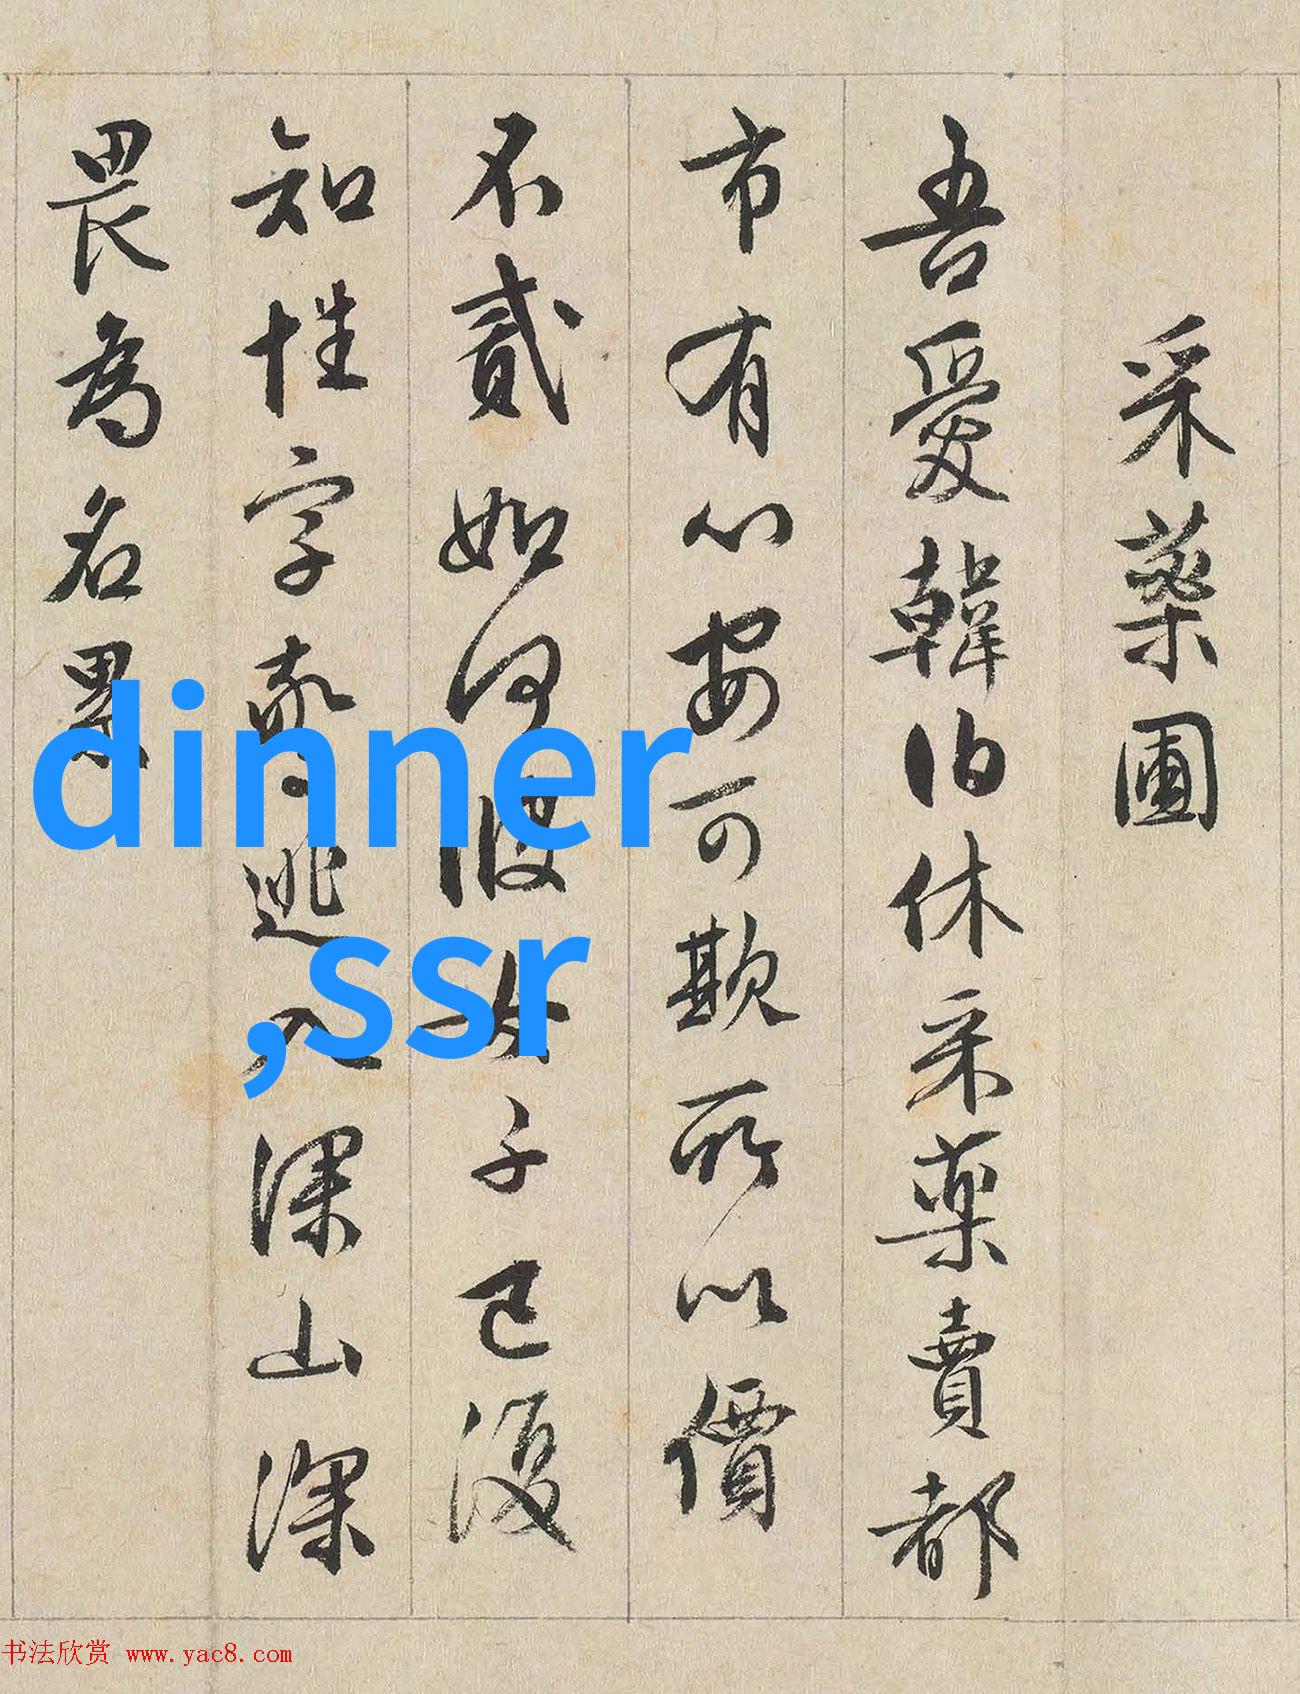 采藥圃
吾愛韓伯休采藥賣都
市有心安可欺所以價
不貳如何彼女子已復
知性字逃入深山深
畏為名累
dinner
,ssr
书法欣赏 www.yac8.com